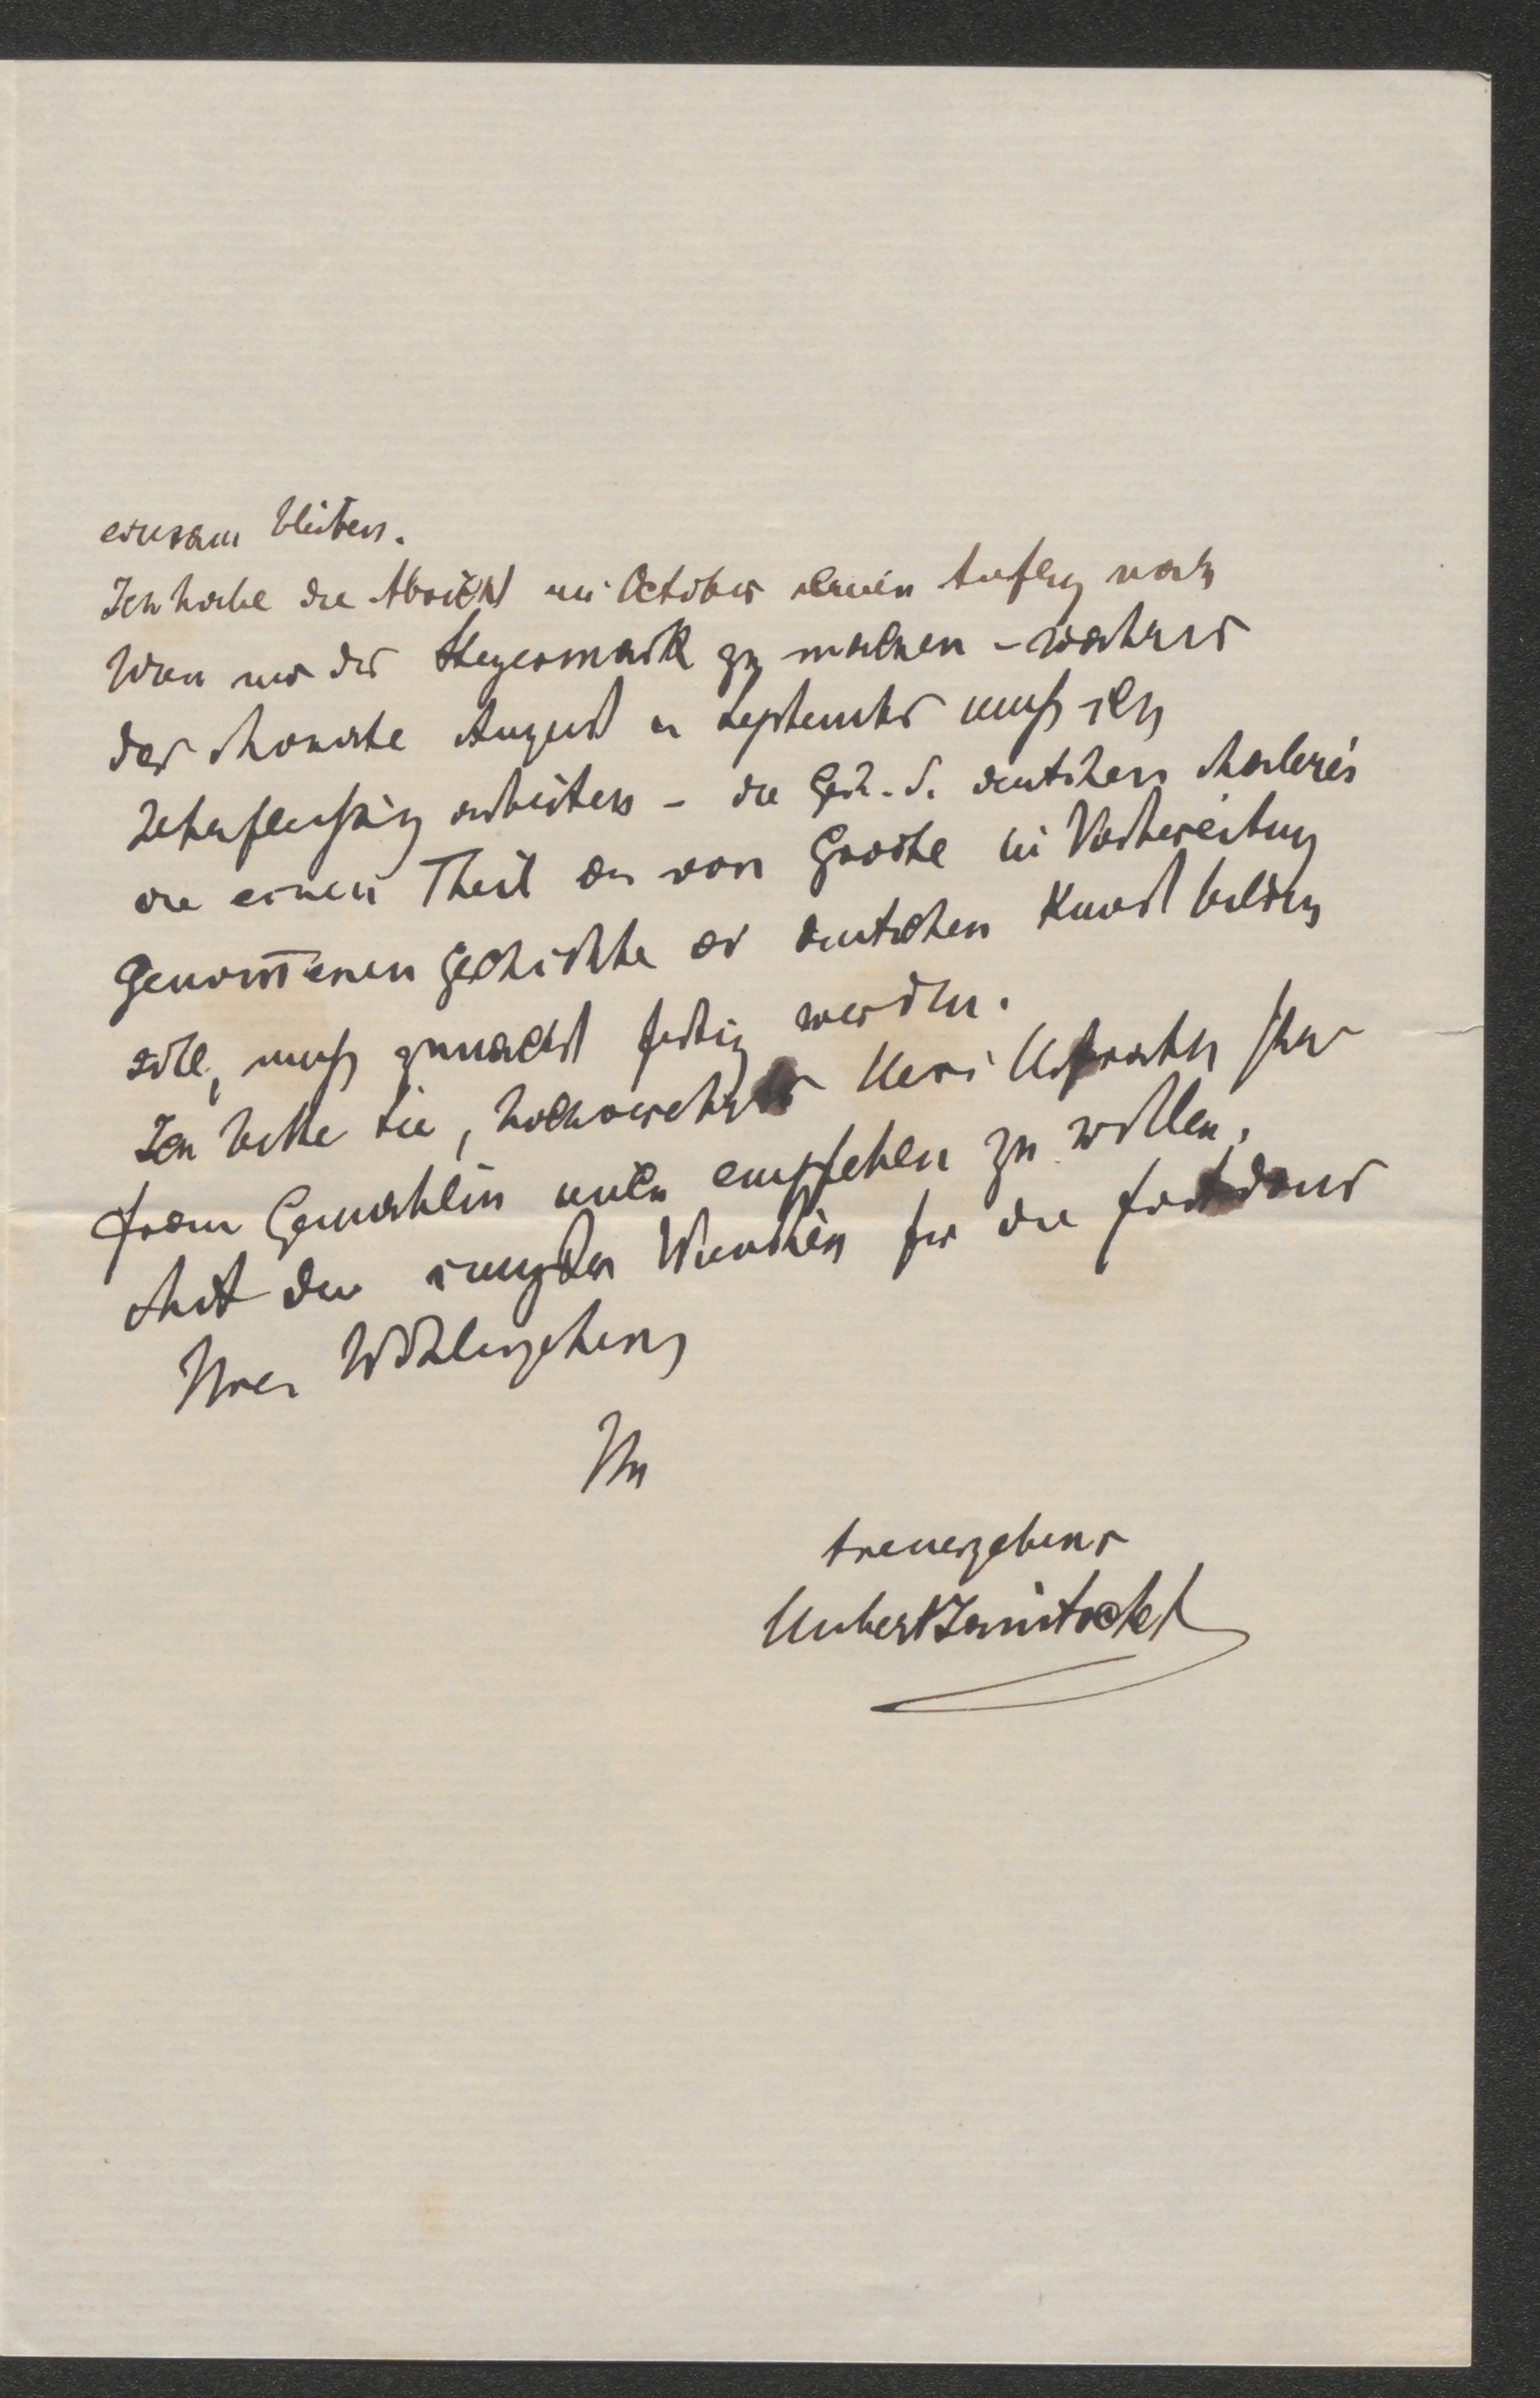 einsam bleiben.
Ich habe die Absicht im October einen Ausflug nach
Wien und der Steyermark zu machen – während
der Monate August u September muß ich
arbeiten – die Gesch. d. deutschen Malerei
die einen Theil der von Grote in Vorbereitung
genom̅enen Geschichte der deutschen Kunst bilden
soll, muß zunächst fertig werden.
Ich bitte Sie, hochverehrter Herr Hofrath Ihrer
Frau Gemahlin mich empfehlen zu wollen.
Mit den innigsten Wünschen für die Fortdauer
Ihres Wohlergehens
Ihr
treuergebener
Hubert Janitschek